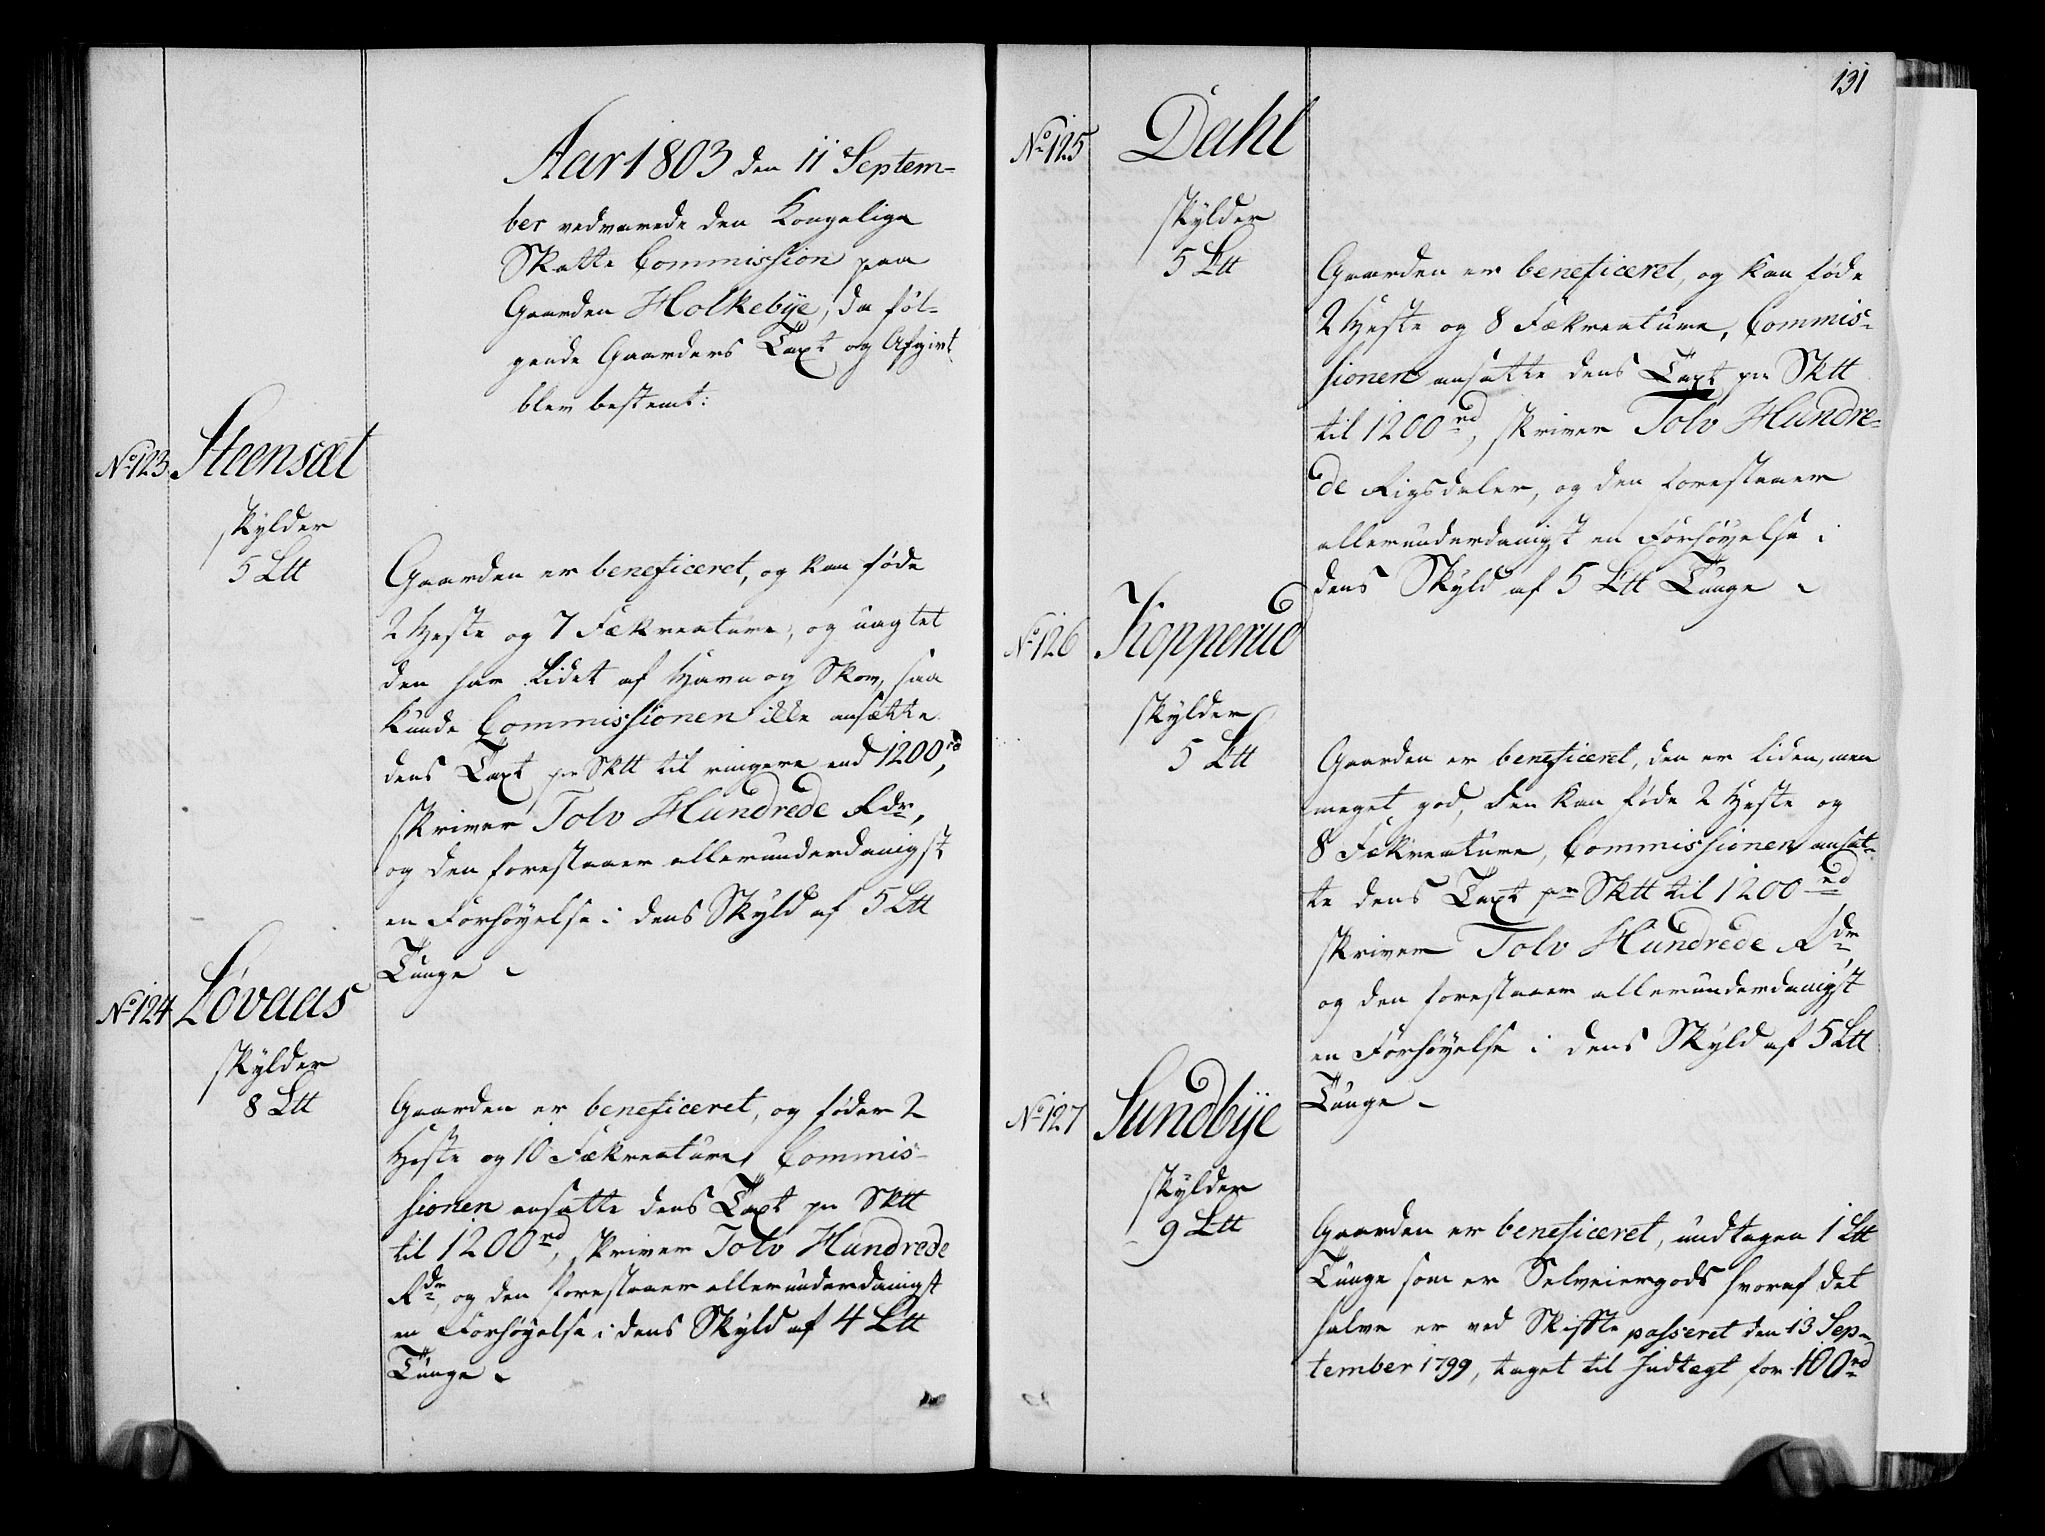 Aar 1803 den 11 Septem-
ber vedvarede den Kongelige
Skatte Commission paa
Gaarden Holkebÿe, da føl-
gende Gaarders Taxt og Afgivt
blev bestemt:
No 123 Steensæt
skylder
5 Ltt
Gaarden er beneficeret, og kan føde
2 Heste og 7 Fækreature, og uagtet
den har lidet af Havn og Skov, saa
kunde Commissionen ikke ansætte
dens Taxt pr Sktt til ringere end 1200 rd,
skriver Tolv Hundrede Rdr,
og den forestaaer allerunderdanigst
en Forhøyelse i dens Skyld af 5 Ltt
Tunge
No 124 Løvaas
skylder
8 Ltt
Gaarden er beneficeret, og føder 2
Heste og 10 Fækreature, Commis-
sionen ansatte dens Taxt pr Sktt
til 1200 rd, skriver Tolv Hundrede
Rdr, og den forestaaer allerunderdanigst
en Forhøyelse i dens Skyld af 4 Ltt
Tunge
131
No 125 Dahl
skylder
5 Ltt
Gaarden er beneficeret, og kan føde
2 Heste og 8 Fækreature, Commis-
sionen ansatte dens Taxt pr Sktt
til 1200 rd, skriver Tolv Hundre-
de Rigsdaler, og den forestaaer
allerunderdanigst en Forhøyelse i
dens Skyld af 5 Ltt Tunge
No 126 Kopperud
skylder
5 Ltt
Gaarden er beneficeret, den er liden, men
meget god, den kan føde 2 Heste og
8 Fækreature, Commissionen ansat-
te dens Taxt pr Sktt til 1200 rd
skriver Tolv Hundrede Rdr,
og den forestaaer allerunderdanigst
en Forhøyelse i dens Skyld af 5 Ltt
Tunge
No 127 Sundbÿe
skylder
9 Ltt
Gaarden er beneficeret, undtagen 1 Ltt
Tunge som er Selveiergods hvoraf det
halve er ved Skifte passeret den 13 Sep-
tember 1799, taget til Indtægt for 100 rd